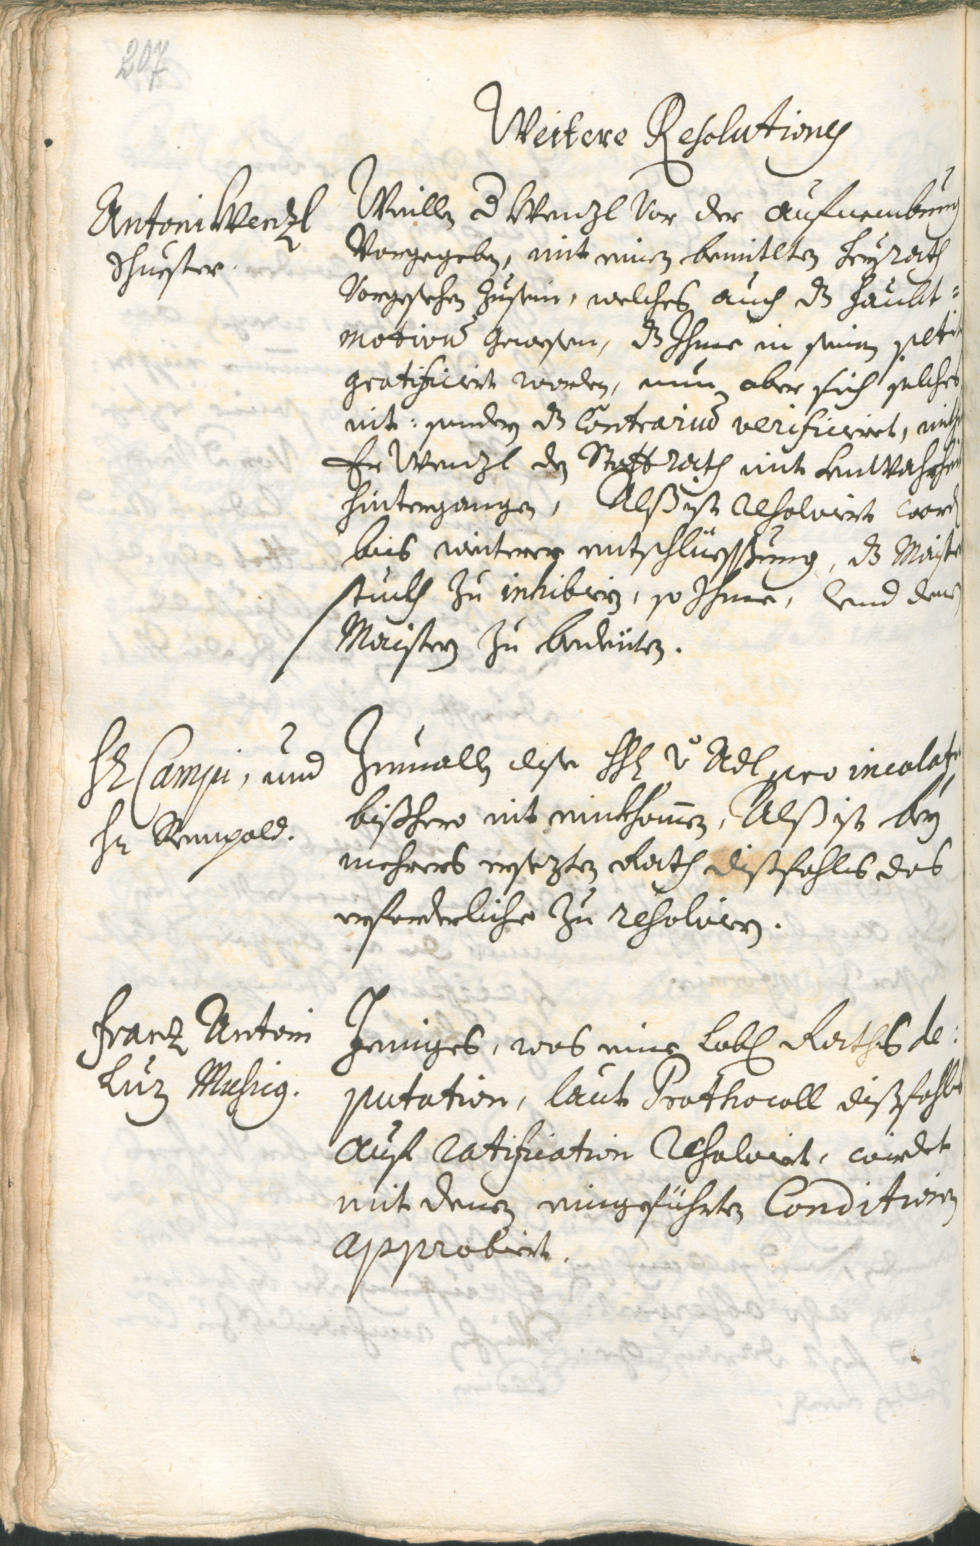 207
Weitere Resolutiones
Antoni Wenzl
Schuester.
Weillen d Wenzl vor der aufnembung
Vorgegeben, mit einen bemitlten Heyrath
Vorgesehen zusein, welches auch dz haubt =
motivum gewesen, dz Ihme in seinen petito
gratificiert worden, nun aber sich solches
nit: sondern dz Contrarium verificieret, mithin
Er Wenzl den Stattrath mit
hintergangen, Alß ist resolviert word
bis weiterer entschliessung, dz Maister
stuckh zu inhibiern, so Ihme, vnd denen
Maistern zu bedeiten.
Hr Campi, und
Hr Rempold.
Zumallen dise HHr pro incolatu
bißhero nit einkhomen, Alß ist bey
mehrers ersezten Rath dißfahls das
erforderliche zu resolviern.
Franz Antoni
Luz Mesig.
Jeniges, was eine Lobl Raths de:
putation, laut Prothocoll dißfahls
auf ratification resolviert, wirdet
mit denen eingeführten Conditionen
approbiert.